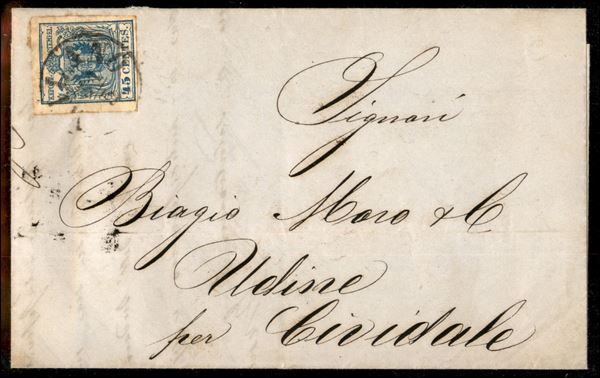 45 CENTES.
Signori
Biagio Moro & C
Udine
per Cividale